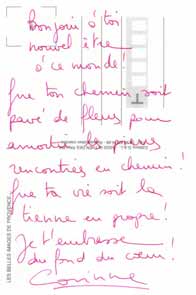 Bonjour à toi
nouvel être
à ce monde !
Que ton chemin soit
pavé de fleurs pour
amortir les pierres
rencontrées en chemin !
Que ta vie soit la
tienne en propre !
Je t'embrasse
du fond du cœur !
Corinne
LES BELLES IMAGES DE PROVENCE